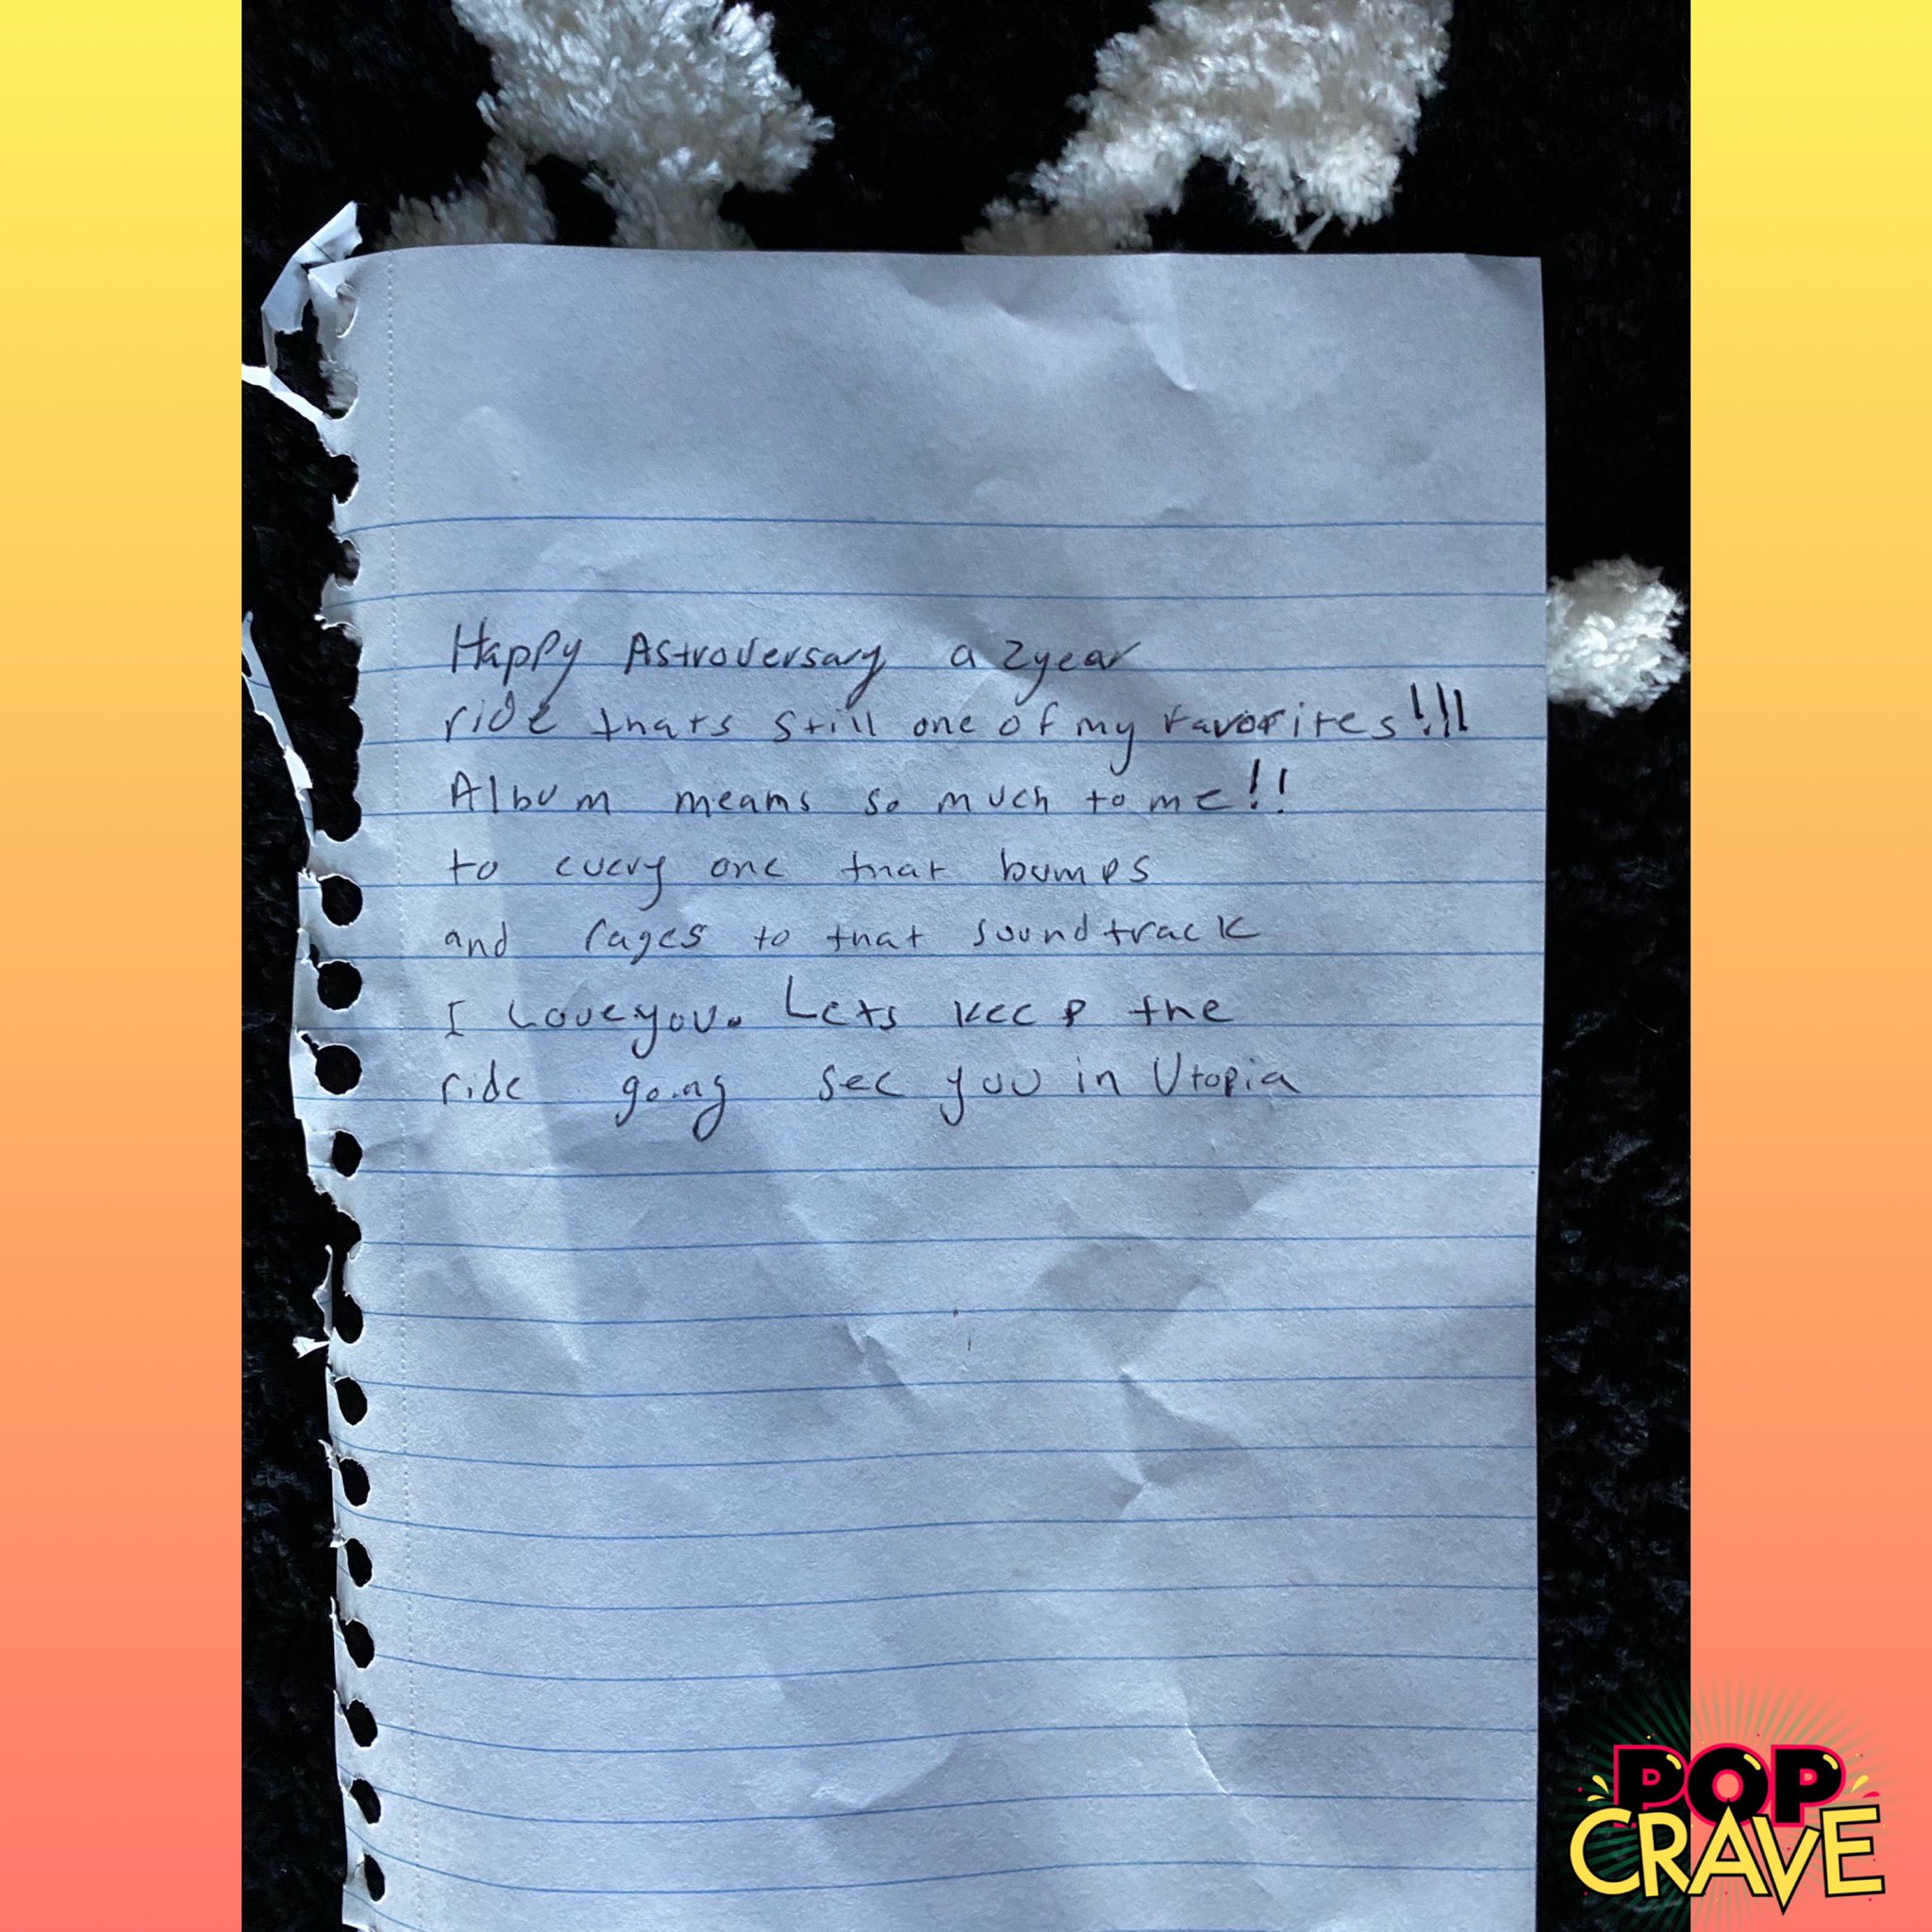 Happy Astroversary a 2year
ride thats still one of my favorites!!!
Album means so much to me!!
to every one that bumps
and rages to that soundtrack
I Love you. Lets keep the
ride going see you in Utopia
POP
CRAVE